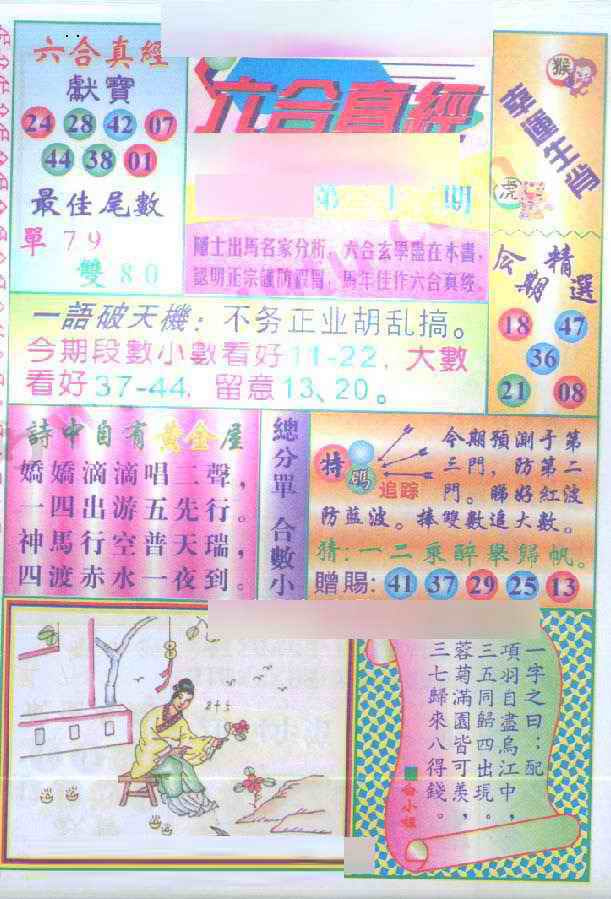 六合真經
獻寶
24 28 42 07
44 38 01
最佳尾數
單 7 9
雙 8 0
六合真經
第 期
隱士出馬名家分析，六合玄學盡在本書，
認明正宗謹防假冒，馬年佳作六合真經。
猴
虎
幸運生肖
今期精選
18 47
36
21 08
一語破天機：不务正业胡乱搞。
今期段數小數看好11-22，大數
看好37-44，留意13、20。
詩中自有黄金屋
嬌嬌滴滴唱二聲，
一四出游五先行。
神馬行空普天瑞，
四渡赤水一夜到。
總分單 合數小
特碼
追踪
今期預測于第
三門，防第二
門。睇好紅波
防藍波。捧雙數追大數。
猜：一二乘醉舉歸帆。
贈賜：41 37 29 25 13
一字之曰：配
項羽自盡烏江中，
三五同歸四出現。
蓉菊滿園皆可羨，
三七歸來八得錢。
白小姐